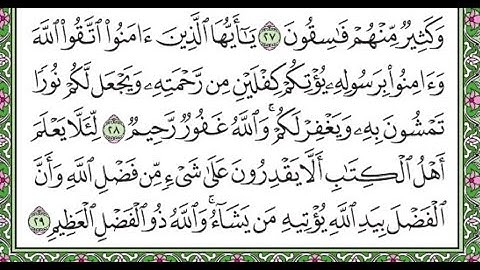 وَكَثِيرٌ مِّنْهُمْ فَـٰسِقُونَ ٢٧ يَـٰٓأَيُّهَا ٱلَّذِينَ ءَامَنُوا۟ ٱتَّقُوا۟ ٱللَّهَ
وَءَامِنُوا۟ بِرَسُولِهِۦ يُؤْتِكُمْ كِفْلَيْنِ مِن رَّحْمَتِهِۦ وَيَجْعَل لَّكُمْ نُورًا
تَمْشُونَ بِهِۦ وَيَغْفِرْ لَكُمْ ۚ وَٱللَّهُ غَفُورٌ رَّحِيمٌ ٢٨ لِّئَلَّا يَعْلَمَ
أَهْلُ ٱلْكِتَـٰبِ أَلَّا يَقْدِرُونَ عَلَىٰ شَىْءٍ مِّن فَضْلِ ٱللَّهِ وَأَنَّ
ٱلْفَضْلَ بِيَدِ ٱللَّهِ يُؤْتِيهِ مَن يَشَآءُ ۚ وَٱللَّهُ ذُو ٱلْفَضْلِ ٱلْعَظِيمِ ٢٩